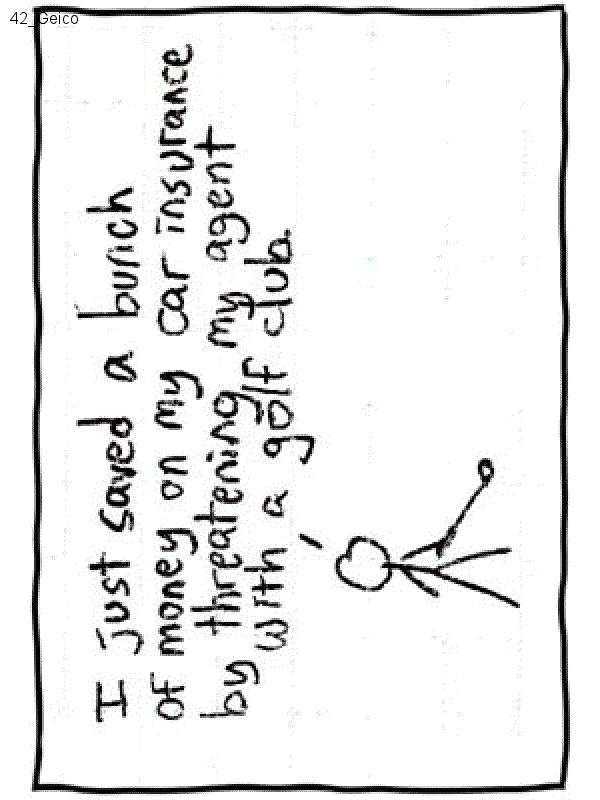 42_Geico
I just saved a bunch
of money on my car insurance
by threatening my agent
with a golf club.